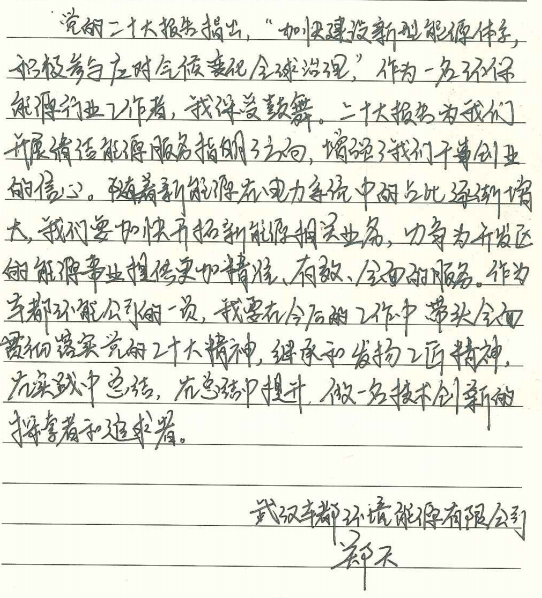 党的二十大报告指出，“加快建设新型能源体系，
积极参与应对气候变化全球治理，”作为一名环保
能源行业工作者，我深受鼓舞。二十大报告为我们
开展清洁能源服务指明了方向，增强了我们干事创业
的信心。随着新能源在电力系统中的占比逐渐增
大，我们要加快开拓新能源相关业务，力争为开发区
的能源事业提供更加精准、有效、全面的服务。作为
车都环能公司的一员，我要在今后的工作中带头全面
贯彻落实党的二十大精神，继承和发扬工匠精神，
在实践中总结，在总结中提升，做一名技术创新的
探索者和追求者。
武汉车都环境能源有限公司
郑天